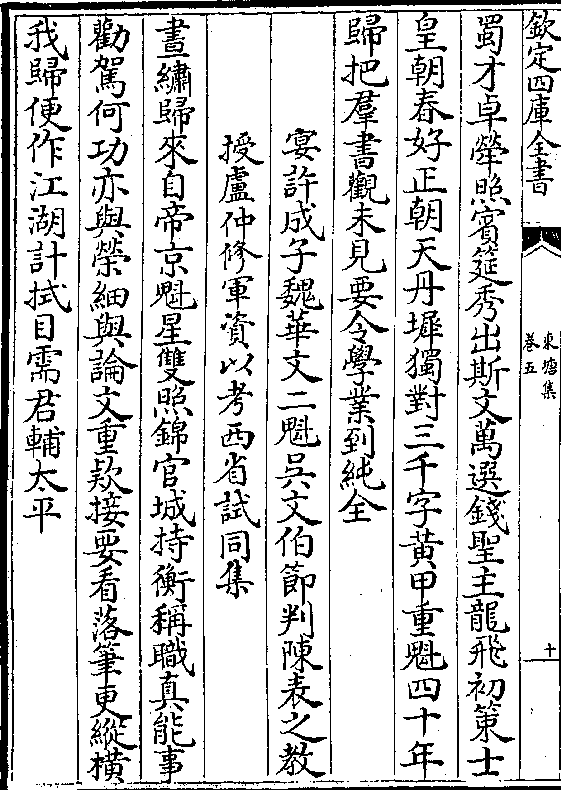 欽定四庫全書
東塘集
卷五
十
蜀才卓犖照賓筵秀出斯文萬選錢聖主龍飛初策士
皇朝春好正朝天丹墀獨對三千字黃甲重魁四十年
歸把羣書觀未見要令學業到純全
宴許成子魏華文二魁吳文伯節判陳表之教
授盧仲修軍資以考西省試同集
晝繡歸來自帝京魁星雙照錦官城持衡稱職真能事
勸駕何功亦與榮細與論文重欵接要看落筆更縱橫
我歸便作江湖計拭目需君輔太平